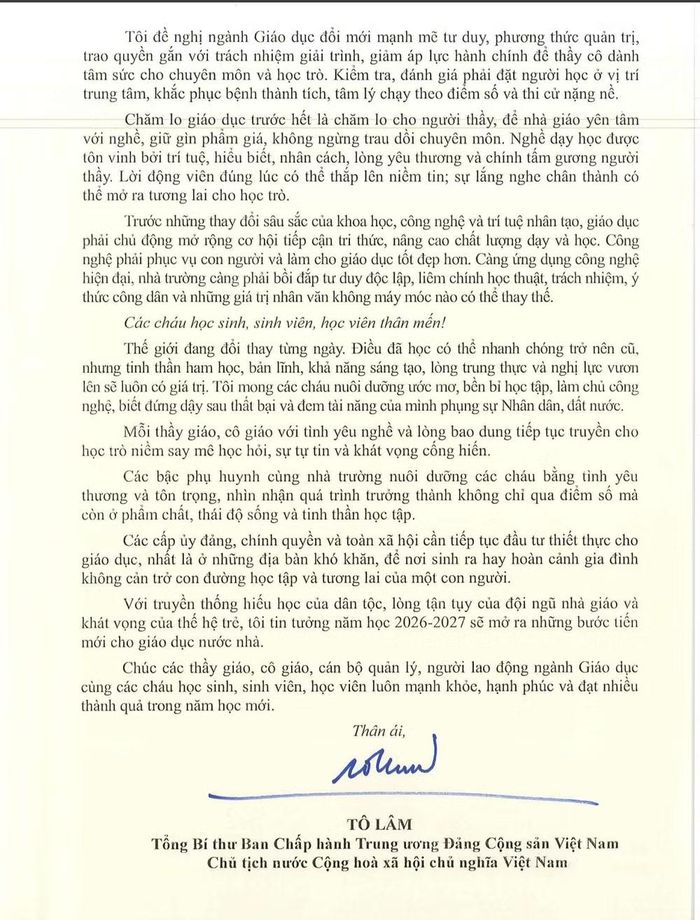 Tôi đề nghị ngành Giáo dục đổi mới mạnh mẽ tư duy, phương thức quản trị,
trao quyền gắn với trách nhiệm giải trình, giảm áp lực hành chính để thầy cô dành
tâm sức cho chuyên môn và học trò. Kiểm tra, đánh giá phải đặt người học ở vị trí
trung tâm, khắc phục bệnh thành tích, tâm lý chạy theo điểm số và thi cử nặng nề.
Chăm lo giáo dục trước hết là chăm lo cho người thầy, để nhà giáo yên tâm
với nghề, giữ gìn phẩm giá, không ngừng trau dồi chuyên môn. Nghề dạy học được
tôn vinh bởi trí tuệ, hiểu biết, nhân cách, lòng yêu thương và chính tấm gương người
thầy. Lời động viên đúng lúc có thể thắp lên niềm tin; sự lắng nghe chân thành có
thể mở ra tương lai cho học trò.
Trước những thay đổi sâu sắc của khoa học, công nghệ và trí tuệ nhân tạo, giáo dục
phải chủ động mở rộng cơ hội tiếp cận tri thức, nâng cao chất lượng dạy và học. Công
nghệ phải phục vụ con người và làm cho giáo dục tốt đẹp hơn. Càng ứng dụng công nghệ
hiện đại, nhà trường càng phải bồi đắp tư duy độc lập, liêm chính học thuật, trách nhiệm, ý
thức công dân và những giá trị nhân văn không máy móc nào có thể thay thế.
Các cháu học sinh, sinh viên, học viên thân mến!
Thế giới đang đổi thay từng ngày. Điều đã học có thể nhanh chóng trở nên cũ,
nhưng tinh thần ham học, bản lĩnh, khả năng sáng tạo, lòng trung thực và nghị lực vươn
lên sẽ luôn có giá trị. Tôi mong các cháu nuôi dưỡng ước mơ, bền bỉ học tập, làm chủ công
nghệ, biết đứng dậy sau thất bại và đem tài năng của mình phụng sự Nhân dân, đất nước.
Mỗi thầy giáo, cô giáo với tình yêu nghề và lòng bao dung tiếp tục truyền cho
học trò niềm say mê học hỏi, sự tự tin và khát vọng cống hiến.
Các bậc phụ huynh cùng nhà trường nuôi dưỡng các cháu bằng tình yêu
thương và tôn trọng, nhìn nhận quá trình trưởng thành không chỉ qua điểm số mà
còn ở phẩm chất, thái độ sống và tinh thần học tập.
Các cấp ủy đảng, chính quyền và toàn xã hội cần tiếp tục đầu tư thiết thực cho
giáo dục, nhất là ở những địa bàn khó khăn, để nơi sinh ra hay hoàn cảnh gia đình
không cản trở con đường học tập và tương lai của một con người.
Với truyền thống hiếu học của dân tộc, lòng tận tụy của đội ngũ nhà giáo và
khát vọng của thế hệ trẻ, tôi tin tưởng năm học 2026-2027 sẽ mở ra những bước tiến
mới cho giáo dục nước nhà.
Chúc các thầy giáo, cô giáo, cán bộ quản lý, người lao động ngành Giáo dục
cùng các cháu học sinh, sinh viên, học viên luôn mạnh khỏe, hạnh phúc và đạt nhiều
thành quả trong năm học mới.
Thân ái,
TÔ LÂM
Tổng Bí thư Ban Chấp hành Trung ương Đảng Cộng sản Việt Nam
Chủ tịch nước Cộng hoà xã hội chủ nghĩa Việt Nam